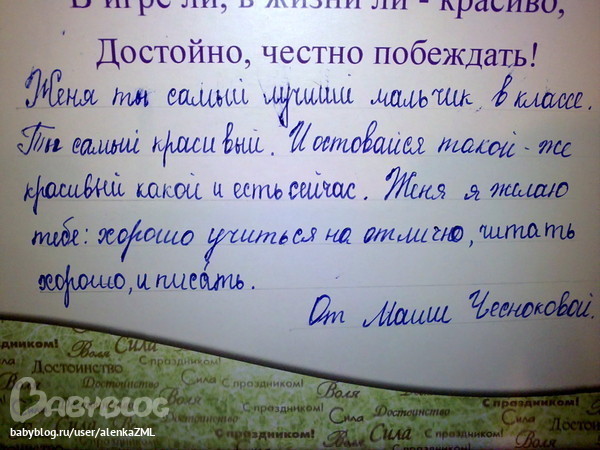 В игре ли, в жизни ли - красиво,
Достойно, честно побеждать!
Женя ты самый лучший мальчик в классе.
Ты самый красивый. И остовайся такой-же
красивый какой и есть сейчас. Женя я желаю
тебе: хорошо учиться на отлично, читать
хорошо, и писать.
От Маши Чесноковой.
здником! Воля Сила С праздником!
ла Достоинство
Достоинство Сила С праздником!
Достоинство
Сила С праздником! Воля
BABYBLOG
babyblog.ru/user/alenkaZML